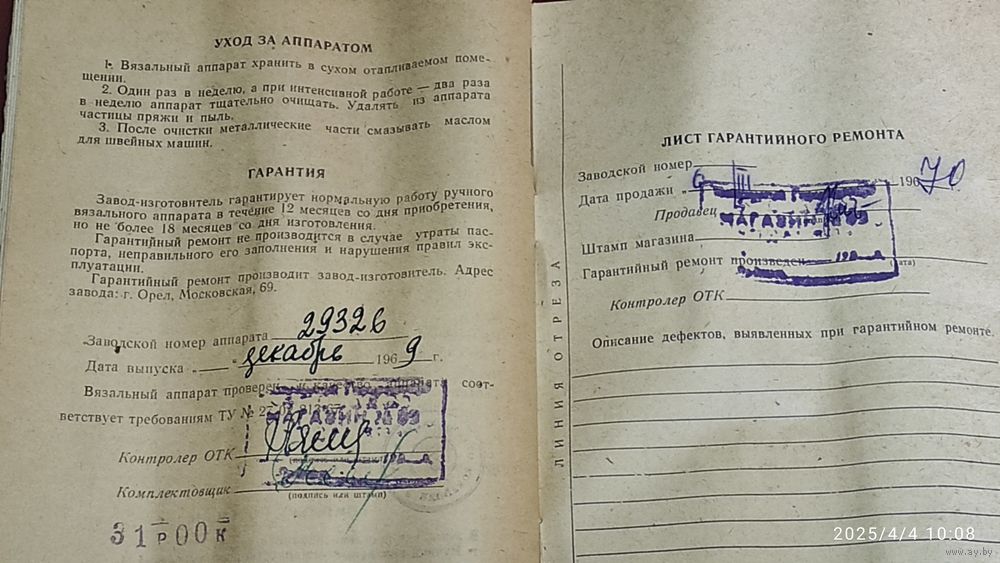 УХОД ЗА АППАРАТОМ
1. Вязальный аппарат хранить в сухом отапливаемом поме-
щении.
2. Один раз в неделю, а при интенсивной работе — два раза
в неделю аппарат тщательно очищать. Удалять из аппарата
частицы пряжи и пыль.
3. После очистки металлические части смазывать маслом
для швейных машин.
ГАРАНТИЯ
Завод-изготовитель гарантирует нормальную работу ручного
вязального аппарата в течение 12 месяцев со дня приобретения,
но не более 18 месяцев со дня изготовления.
Гарантийный ремонт не производится в случае утраты пас-
порта, неправильного его заполнения и нарушения правил экс-
плуатации.
Гарантийный ремонт производит завод-изготовитель. Адрес
завода: г. Орел, Московская, 69.
Заводской номер аппарата 29326
Дата выпуска „ “ декабрь 1969 г.
Вязальный аппарат проверен и качество аппарата соот-
ветствует требованиям ТУ №
МАГАЗИН № 69
Контролер ОТК
Комплектовщик
(подпись или штамп)
31 Р 00 К
ЛИНИЯ ОТРЕЗА
ЛИСТ ГАРАНТИЙНОГО РЕМОНТА
Заводской номер
Дата продажи „ 6 III 196 70
Продавец
МАГАЗИН № 69
Штамп магазина
Гарантийный ремонт произведен
(дата)
Контролер ОТК
Описание дефектов, выявленных при гарантийном ремонте.
2025/4/4 10:08
www.ay.by